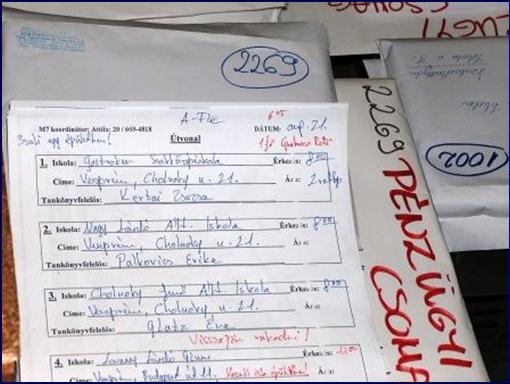 CSOMAG
2269
1002
2269
PÉNZÜGYI
CSOMA
A-Fhe
M7 koordinátor: Attila: 20 / 669-4818
Útvonal
DÁTUM: aug. 21.
1. Iskola: Gasztroker Szakközépiskola Érkezés: 8:00
Címe: Veszprém, Cholnoky u. 21. Ára:
Tankönyvfelelős: Kertai Zsuzsa
2. Iskola: Nagy László Ált. Iskola Érkezés: 8:00
Címe: Veszprém, Cholnoky u. 21. Ára:
Tankönyvfelelős: Palkovics Erika
3. Iskola: Cholnoky Jenő Ált Iskola Érkezés: 8:00
Címe: Veszprém, Cholnoky u. 21. Ára:
Tankönyvfelelős: Glatz Éva
Visszafén rakodni!
4. Iskola: Lovassy László Gimn. Érkezés: 11:00
Címe: Veszprém, Budapest út 11.